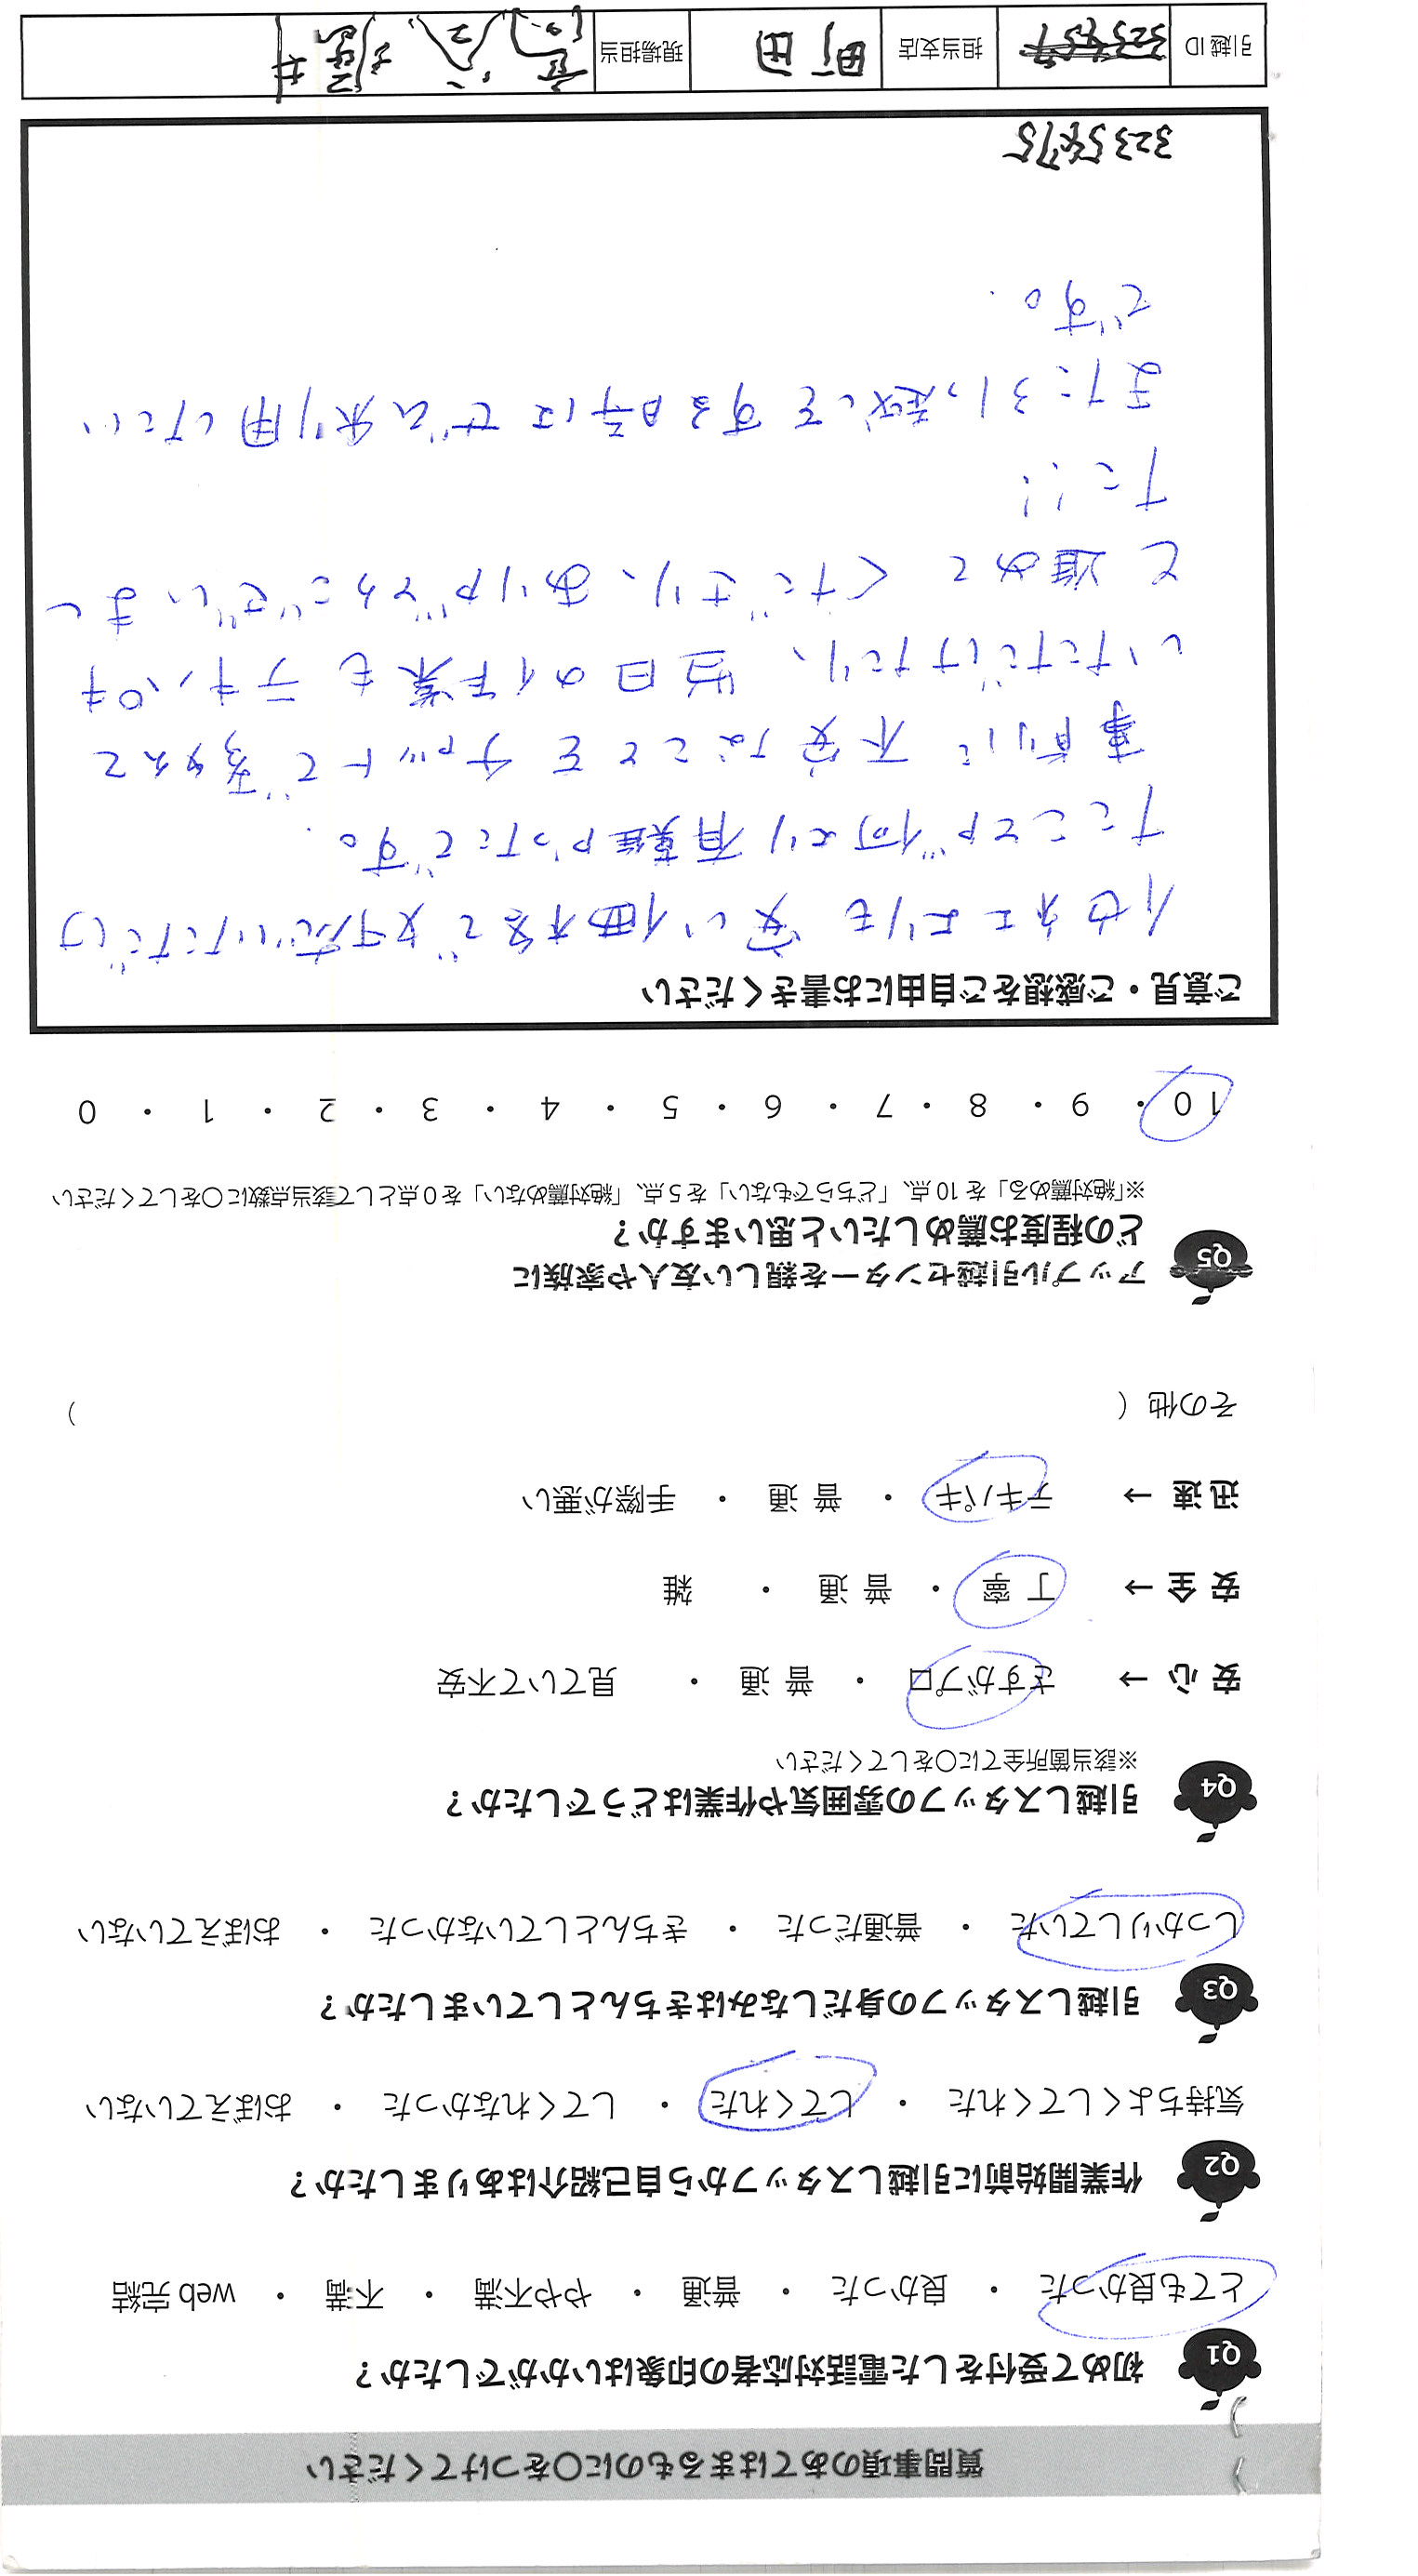 質問事項のあてはまるものに〇をつけてください
Q1 初めて受付をした電話対応者の印象はいかがでしたか？
とても良かった ・ 良かった ・ 普通 ・ やや不満 ・ 不満 ・ web 完結
Q2 作業開始前に引越しスタッフから自己紹介はありましたか？
気持ちよくしてくれた ・ してくれた ・ してくれなかった ・ おぼえていない
Q3 引越しスタッフの身だしなみはきちんとしていましたか？
しっかりしていた ・ 普通だった ・ きちんとしていなかった ・ おぼえていない
Q4 引越しスタッフの雰囲気や作業はどうでしたか？
※該当箇所全てに〇をしてください
安 心 → さすがプロ ・ 普 通 ・ 見ていて不安
安 全 → 丁 寧 ・ 普 通 ・ 雑
迅 速 → テキパキ ・ 普 通 ・ 手際が悪い
その他（ ）
Q5 アップル引越センターを親しい友人や家族に
どの程度お薦めしたいと思いますか？
※「絶対薦める」を 10 点、「どちらでもない」を 5 点、「絶対薦めない」を 0 点として該当点数に〇をしてください
10 ・ 9 ・ 8 ・ 7 ・ 6 ・ 5 ・ 4 ・ 3 ・ 2 ・ 1 ・ 0
ご意見・ご感想をご自由にお書きください
他社よりも安い価格で対応いただけ
たことが何より有難かったです。
事前に不安なことをチャットで答えて
いただけたり、当日の作業もテキパキ
と進めてくださり、ありがとうございまし
た!!
また引っ越しをする時はぜひ利用したい
です。
引越 ID
担当支店 町田 現場担当